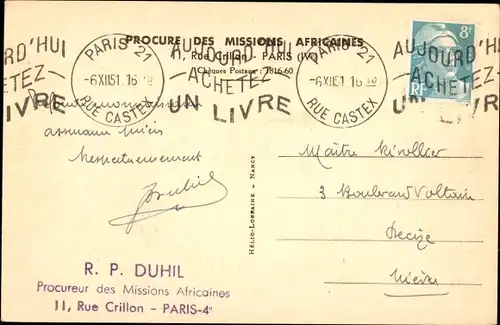 PROCURE DES MISSIONS AFRICAINES
Rue Crillon - PARIS (IVe)
Chèques Postaux : 7816-60
RD'HUI
TEZ-
IVRE
PARIS 21
-6 XII 51. 16
RUE CASTEX
AUJOURD'HUI
ACHETEZ
UN LIVRE
PARIS 21
-6 XII 51. 16 30
RUE CASTEX
AUJOURD'HUI
ACHETEZ
UN LIVRE
8F
RF
Respectueusement
Duhil
HÉLIO-LORRAINE - NANCY
Maître
3 Boulevard Voltaire
Decize
Nièvre
R. P. DUHIL
Procureur des Missions Africaines
11, Rue Crillon - PARIS-4e